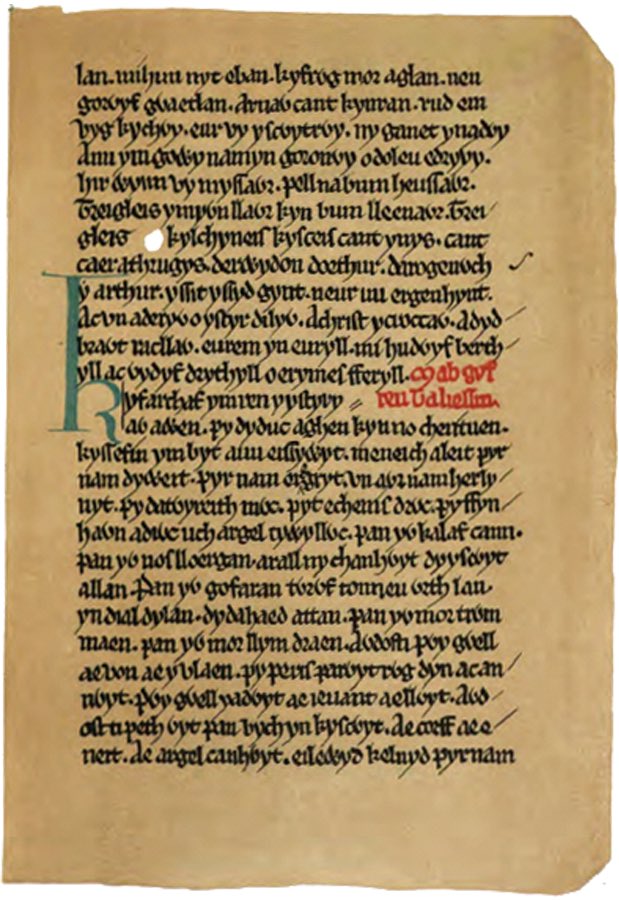 lan. mi hun nyt eban. kyfrog mor aglan. neu
gorwyf gwaetlan. arnaw cant kynran. rud em
vyg kychwy. eur vy yscwytrwy. ny ganet yn adwy
a uu ym gowy namyn goronwy o doleu edrywy.
hir wynn vy myssawr. pell na bum heussawr.
Treigleis y mywn llawr kyn bum lleenawr. Trei
gleis kylchyneis kysceis cant ynys. cant
caer athrugys. derwydon doethur. darogenwch
y arthur. yssit yssyd gynt. neur uu ergenhynt.
Ac vn aderyw o ystyr dilyw. A christ y croccaw. A dyd
brawt racllaw. eurem yn euryll. mi hudwyf berth
yll ac vydyf drythyll o erymes fferyll. Mab gyf
reu Taliessin.
Kyfarchaf ym ren y ystyry
aw awen. py dyduc aghen kyn no cherituen.
kyssefin ym byt a uu eissywyt. meneich aleit pyr
nam dyweit. pyr nam eisgyt. vn awr nam herly
nyt. py datwyreith mwc. pyt echenis drwc. py ffyn
hawn a diwc uch argel tywyllwc. pan yw kalaf cann.
pan yw nos lloergan. arall ny chanhwyt dy yscwyt
allan. Pan yw gofaran twrwf tonneu wrth lan.
yn dial dylan. dydahaed attan. pan yw mor trwm
maen. pan yw mor llym draen. Awdosti pwy gwell
ae von ae y vlaen. py peris parwyt rwg dyn ac an
nwyt. pwy gwell y adwyt ae ieuanc ae llwyt. A wd
osti peth wyt pan vych yn kyscwyt. Ae corff ae e
neit. Ae argel canhwyt. eilewyd keluyd pyr nam